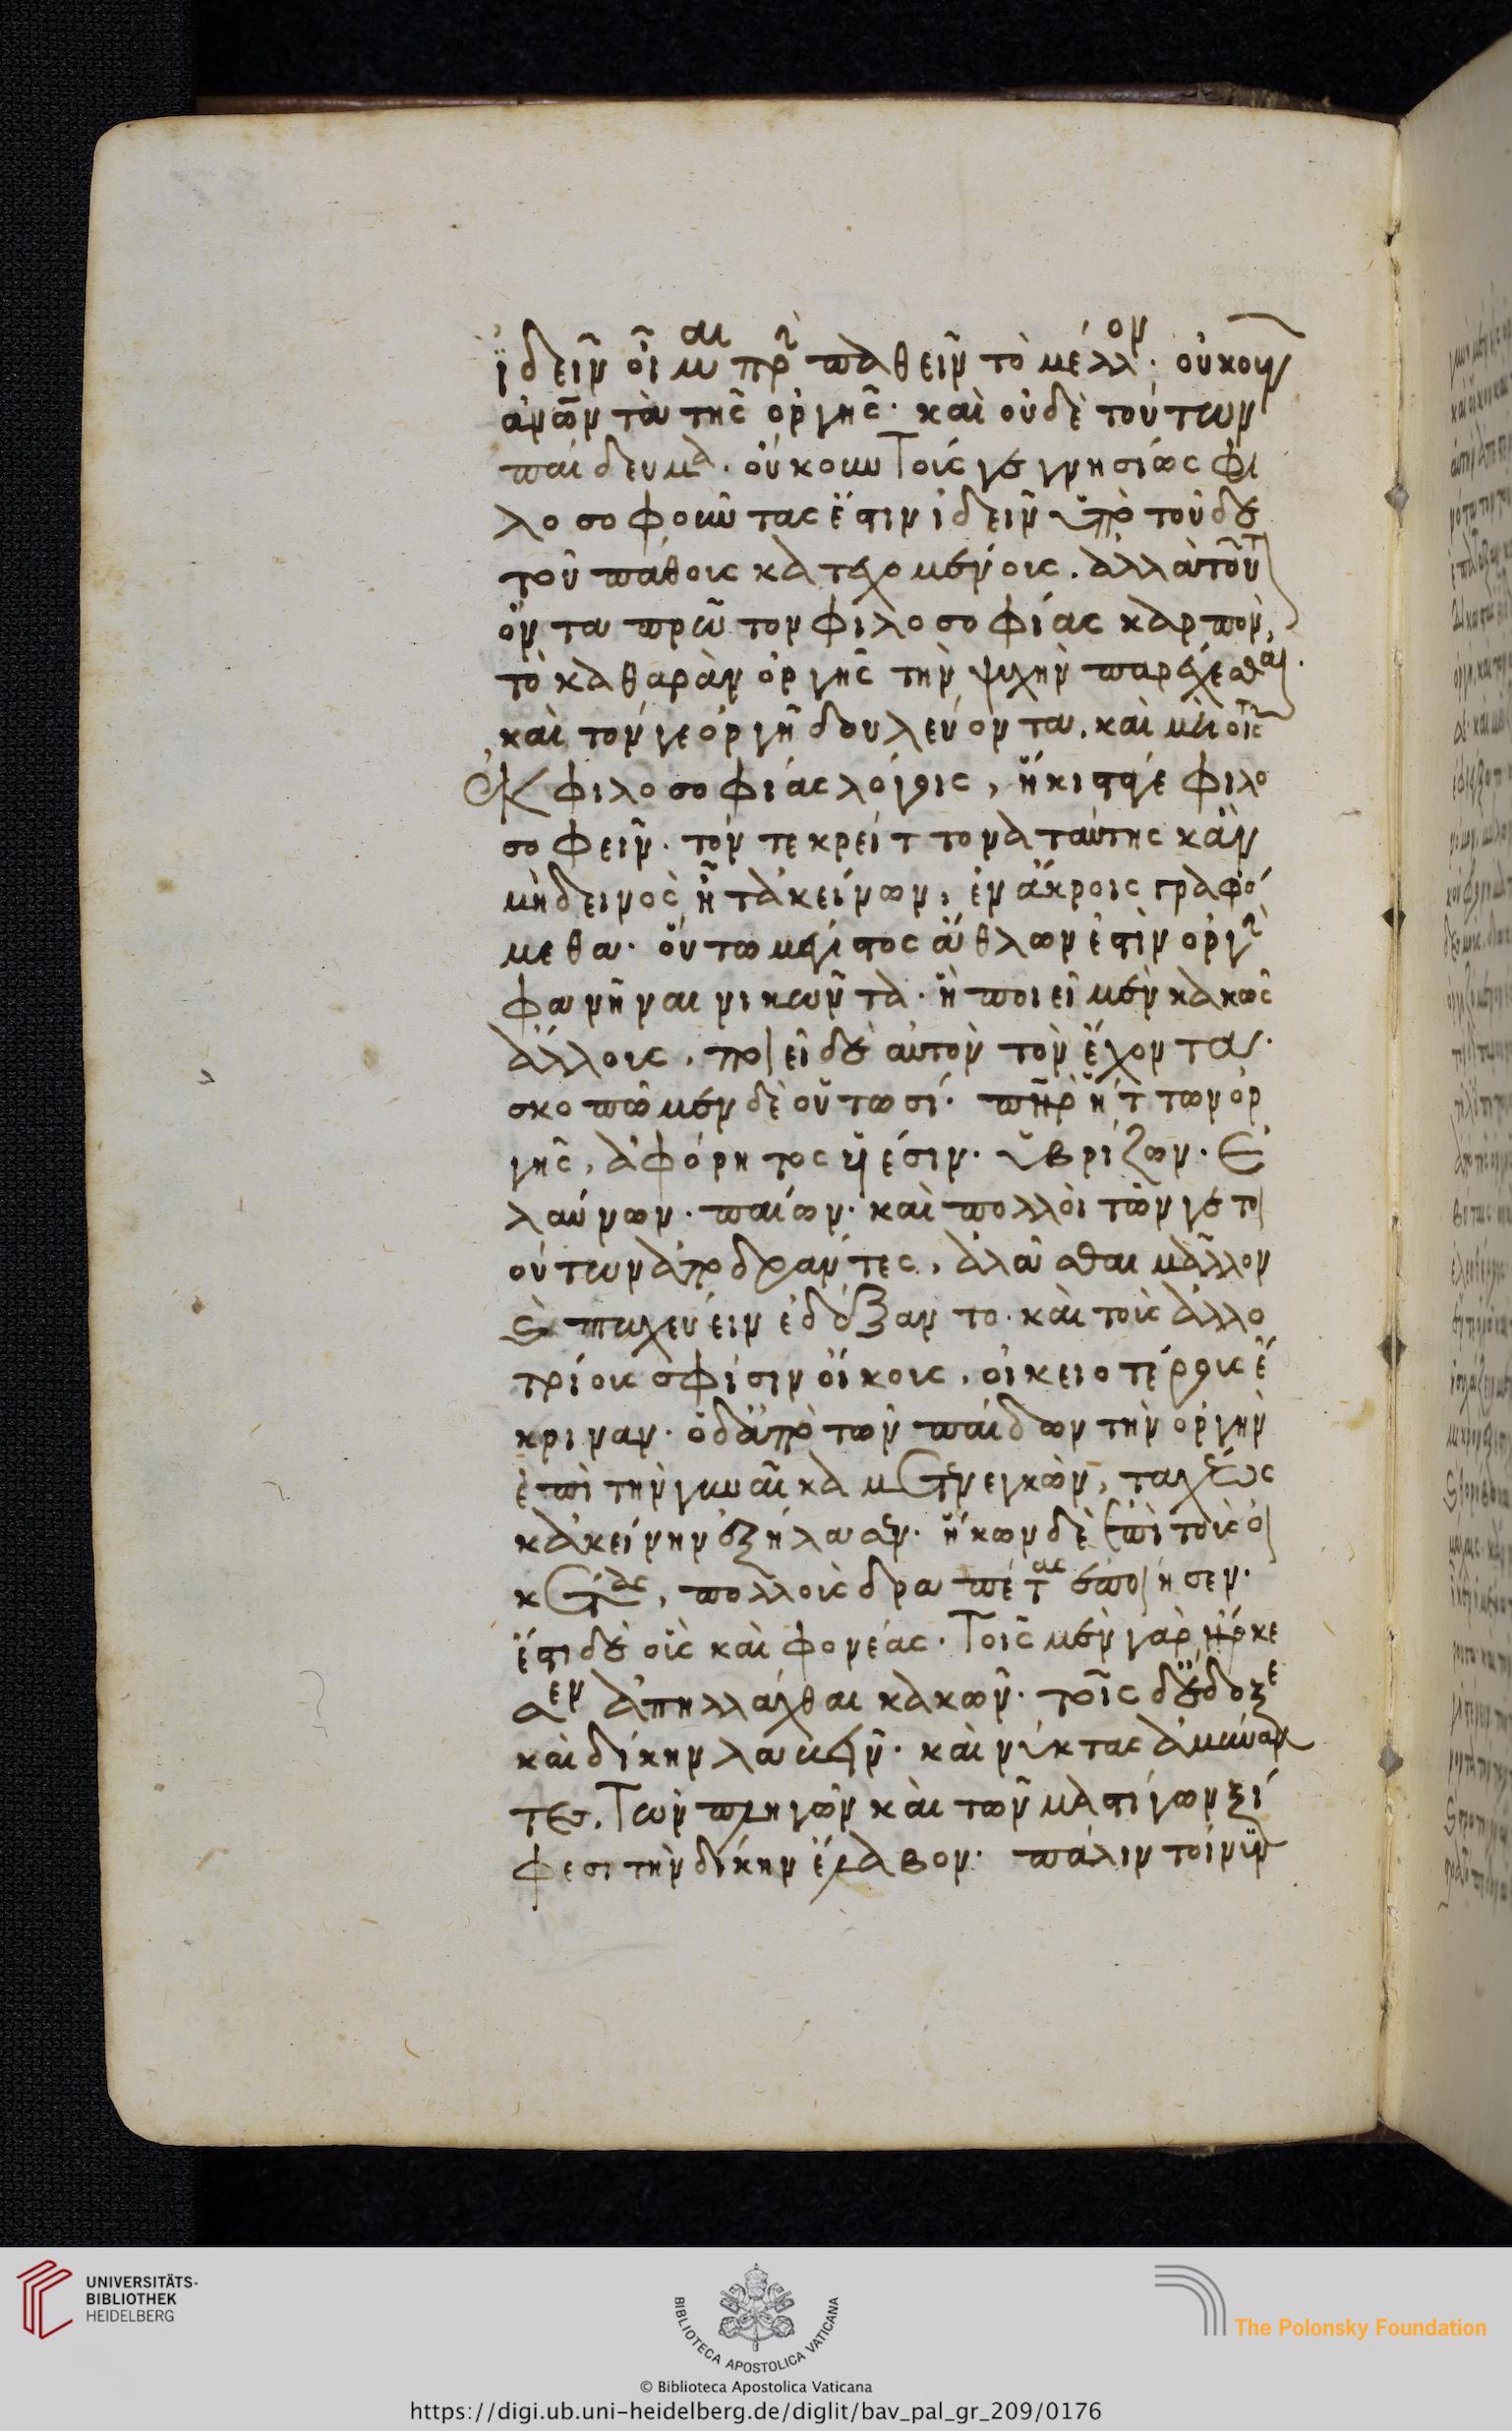 ἰδεῖν οἶμαι πρὶν παθεῖν τὸ μέλλον. οὐκοῦν
ἀνῶν τὰ τῆς ὀργῆς. καὶ οὐδὲ τούτων
παίδευμα. οὔκουν τοίς γε γνησίως φι
λοσοφοῦντας ἔστιν ἰδεῖν ὑπὸ τοῦδε
τοῦ πάθοις κατεχομένοις. ἀλλὰ τοῦτον
ὄντα πρῶτον φιλοσοφίας καρπὸν,
τὸ καθαρὰν ὀργῆς τὴν ψυχὴν παρέχεσθαι.
καὶ τόν γε ὀργῆ δουλεύοντα. καὶ μὴ τοῖς
ἐκ φιλοσοφίας λόγοις, ἥκιστά γε φιλο
σοφεῖν. τόν τε κρείττονα ταύτης κἂν
μηδεινὸς ᾖ τἀκείνων, ἐν ἄκροις γραφό
μεθα. οὕτω μέγιστος ἄθλων ἐστὶν ὀργὴν
φανῆναι νικῶντα. ἢ ποιεῖ μὲν κακῶς
ἄλλοις. ποιεῖ δὲ αὐτὸν τὸν ἔχοντας.
σκοπῶμεν δὲ οὕτωσί. πατὴρ ἥττων ὀρ
γῆς, ἀφόρητος υἱέσιν. ὑβρίζων. ἐ
λαύνων. παίων. καὶ πολλοὶ τῶν γε το
ούτων ἀποδράντες, ἀλᾶσθαι μᾶλλον
καὶ πτωχεύειν ἐδέξαντο. καὶ τοῖς ἀλλο
τρίοις σφίσιν οἴκοις, οἰκειοτέροις ἔ
κριναν. ὁ δ' ἀπὸ τῶν παίδων τὴν ὀργὴν
ἐπὶ τὴν γυναῖκα μετενεγκὼν, ταχέως
κἀκείνην ἐξήλασεν. ἥκων δὲ ἐπὶ τοὺς οἰ
κέτας, πολλοὺς δραπέτας ἐποίησεν.
ἔστι δὲ οὓς καὶ φονέας. Τοῖς μὲν γὰρ ἤρκε
σεν ἀπηλλάχθαι κακῶν. τοῖς δὲ ἔδοξε
καὶ δίκην λαβεῖν. καὶ νύκτας ἀμείναν
τες. Τῶν πληγῶν καὶ τῶν μαστίγων ξί
φεσι τὴν δίκην ἔλαβον. πάλιν τοίνυν
UNIVERSITÄTS-
BIBLIOTHEK
HEIDELBERG
BIBLIOTECA APOSTOLICA VATICANA
The Polonsky Foundation
© Biblioteca Apostolica Vaticana
https://digi.ub.uni-heidelberg.de/diglit/bav_pal_gr_209/0176